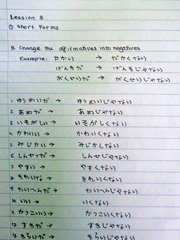 Lession 8
① Short Forms
B. Change the affirmatives into negatives
Example: たかい → たかくない
げんきだ → げんきじゃない
がくせいだ → がくせいじゃない
1. ゆうめいだ → ゆうめいじゃない
2. あめだ → あめじゃない
3. いそがしい → いそがしくない
4. かわいい → かわいくない
5. みじかい → みじかくない
6. しんせつだ →
7. やすい → やすくない
8. きれいだ →
9. たいへんだ → たいへんじゃない
10. いい →
11. かっこいい →
12. すきだ → すきじゃない